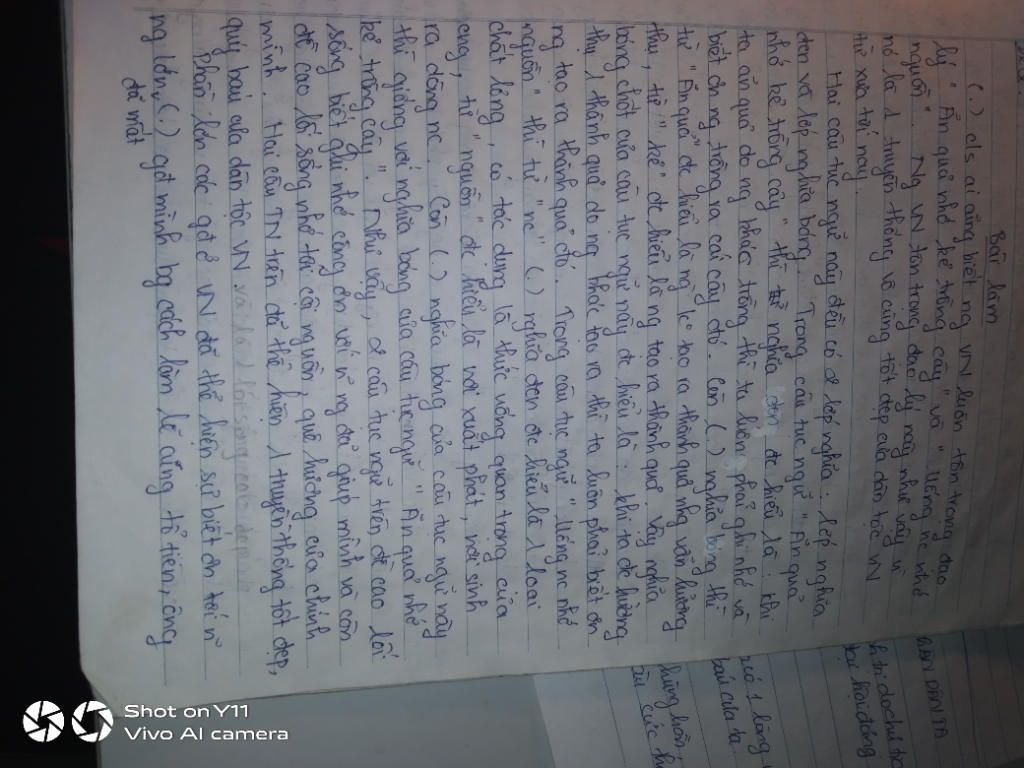 Bài làm
(.) c/s ai cũng biết ng VN luôn tôn trọng đạo
lý " Ăn quả nhớ kẻ trồng cây " và " Uống nc nhớ
nguồn". Ng VN tôn trọng đạo lý này như vậy vì
nó là 1 truyền thống vô cùng tốt đẹp của dân tộc VN
từ xưa tới nay.
Hai câu tục ngữ này đều có 2 lớp nghĩa : lớp nghĩa
đen và lớp nghĩa bóng. Trong câu tục ngữ " Ăn quả
nhớ kẻ trồng cây " thì nghĩa đen đc hiểu là : khi
ta ăn quả do ng khác trồng thì ta luôn phải ghi nhớ và
biết ơn ng trồng ra cái cây đó. Còn (.) nghĩa bóng thì
từ " Ăn quả" đc hiểu là ng k tạo ra thành quả nhg vẫn hưởng
thụ, từ " kẻ" đc hiểu là ng tạo ra thành quả. Vậy nghĩa
bóng chốt của câu tục ngữ này đc hiểu là : khi ta đc hưởng
thụ 1 thành quả do ng khác tạo ra thì ta luôn phải biết ơn
ng tạo ra thành quả đó. Trong câu tục ngữ " Uống nc nhớ
nguồn" thì từ " nc" (.) nghĩa đen đc hiểu là 1 loại
chất lỏng, có tác dụng là thức uống quan trọng của
, từ " nguồn " đc hiểu là nơi xuất phát, nơi sinh
ra dòng nc. Còn (.) nghĩa bóng của câu tục ngữ này
thì giống với nghĩa bóng của câu tục ngữ " Ăn quả nhớ
kẻ trồng cây". Như vậy, 2 câu tục ngữ trên đề cao lối
sống biết ghi nhớ công ơn với ~ ng đã giúp mình và còn
đề cao lối sống nhớ tới cội nguồn, quê hương của chính
mình. Hai câu TN trên đã thể hiện 1 truyền thống tốt đẹp,
quý báu của dân tộc VN
Phần lớn các gđ ở VN đã thể hiện sự biết ơn tới ~
ng lớn (.) gđ mình bg cách làm lễ cúng tổ tiên, ông
đã mất
ANH